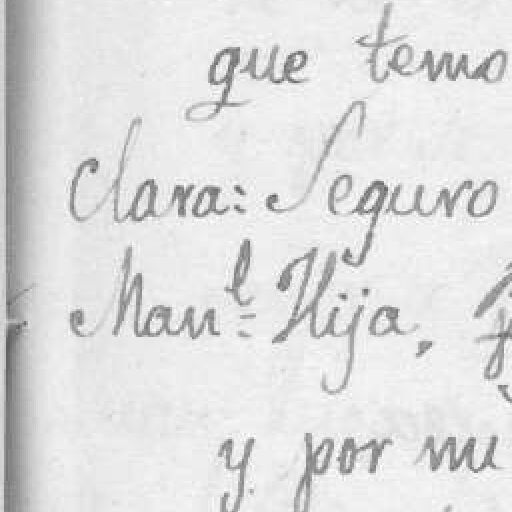 que temo
Clara: Seguro
Man.l Hija,
y por mi